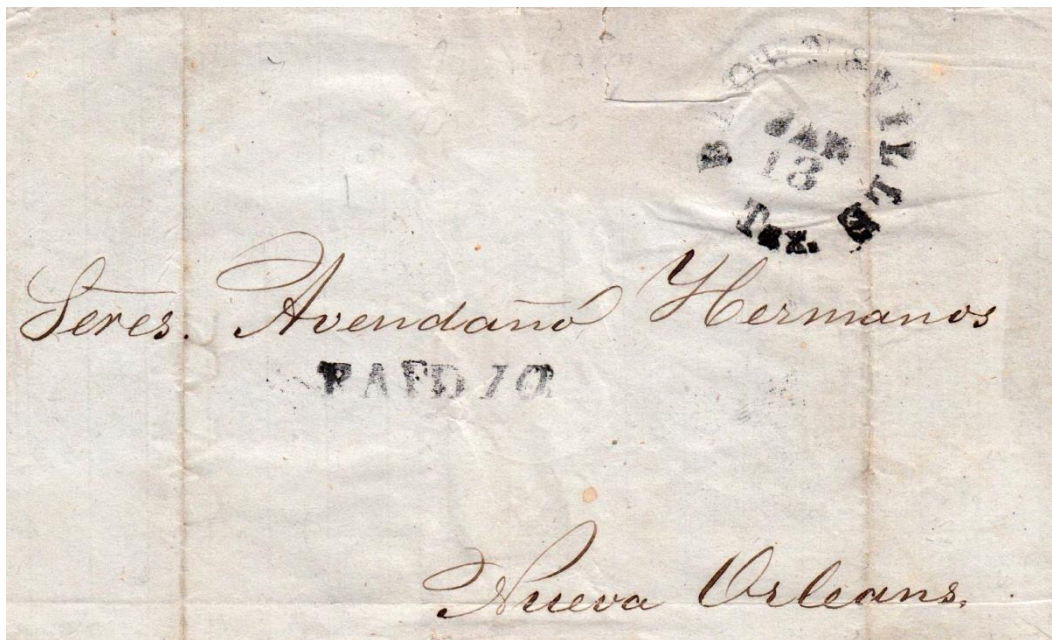 BROWNSVILLE
JAN
13
Tex.
Seres. Avendaño Hermanos
PAID 10
Nueva Orleans.